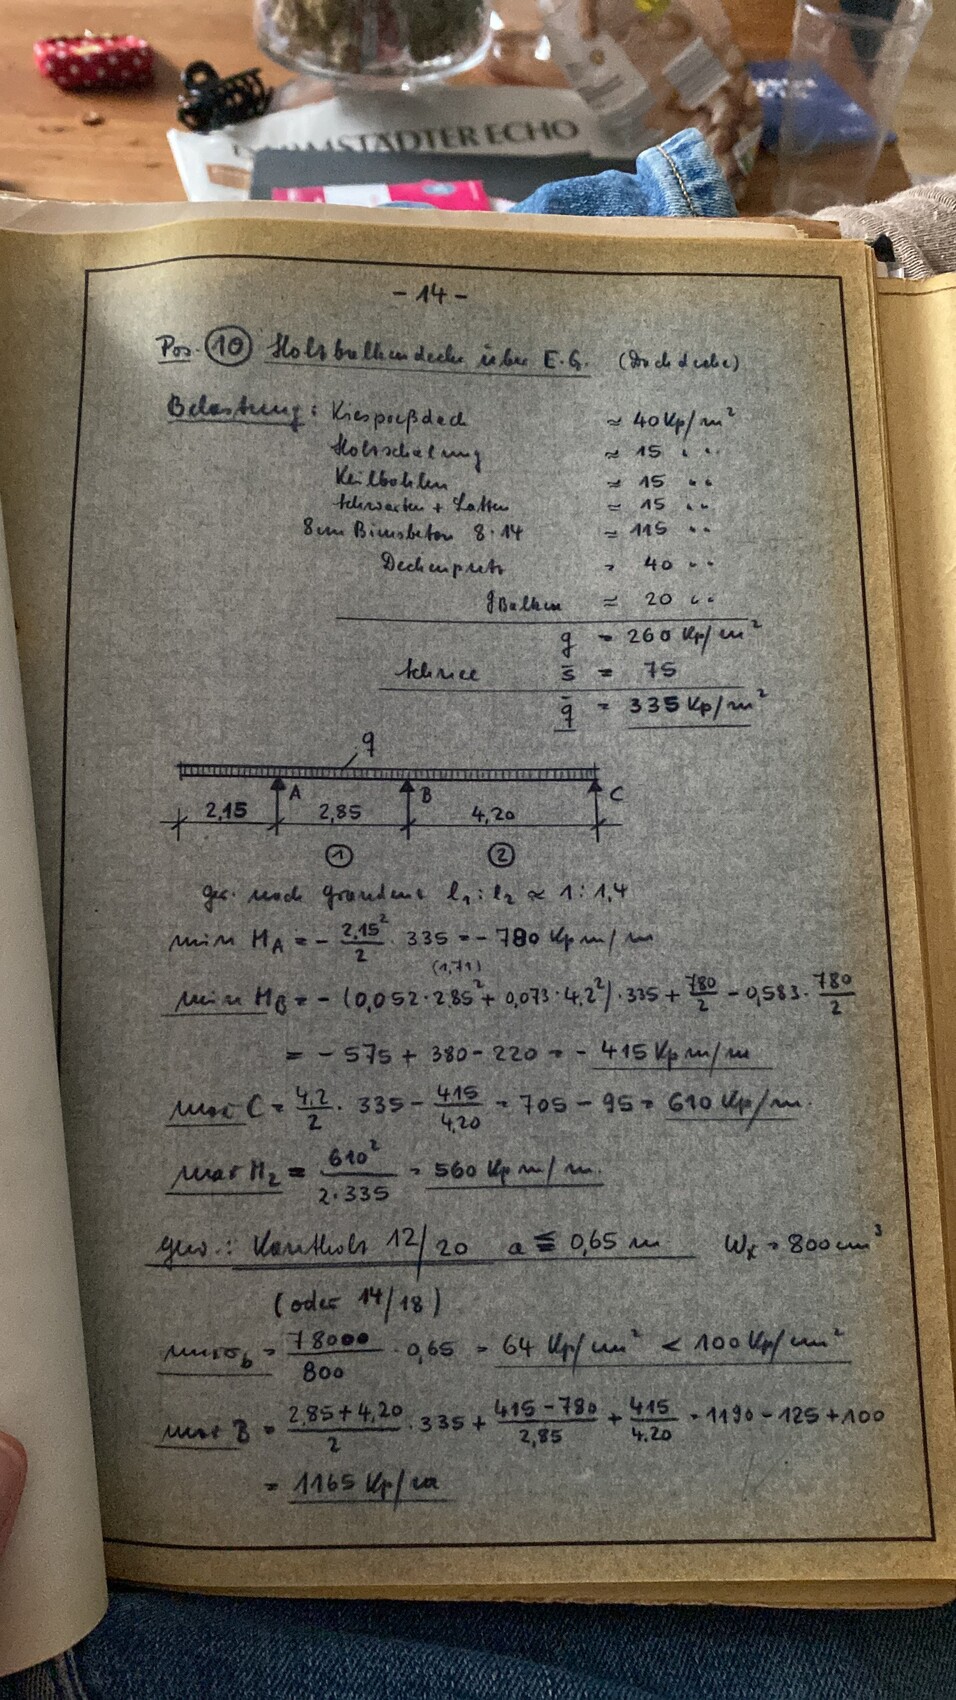 DARMSTÄDTER ECHO
- 14 -
Pos. 10 Holzbalkendecke über E.G. (Dachdecke)
Belastung: Kiespreßdach ≈ 40 Kp/m²
Holzschalung ≈ 15 " "
Keilbohlen ≈ 15 " "
Schwarten + Latten = 15 " "
8cm Bimsbeton 8·14 ≈ 115 " "
Deckenputz = 40 " "
g Balken ≈ 20 " "
g = 260 Kp/m²
Schnee s̄ = 75
q̄ = 335 Kp/m²
q
A B C
2,15 2,85 4,20
1 2
ger. nach l₁ : l₂ ≈ 1 : 1,4
min M_A = - 2,15²/2 · 335 = - 780 Kpm/m
(1,71)
min M_B = - (0,052·2,85² + 0,073·4,2²)·335 + 780/2 - 0,583·780/2
= - 575 + 380 - 220 = - 415 Kpm/m
max C = 4,2/2 · 335 - 415/4,20 = 705 - 95 = 610 Kp/m.
max M₂ = 610²/2·335 = 560 Kpm/m.
gew.: Kantholz 12/20 a ≦ 0,65 m Wx = 800 cm³
(oder 14/18)
max σ_b = 78000/800 · 0,65 = 64 Kp/cm² < 100 Kp/cm²
max B = 2,85+4,20/2 · 335 + 415-780/2,85 + 415/4.20 = 1190 - 125 + 100
= 1165 Kp/m